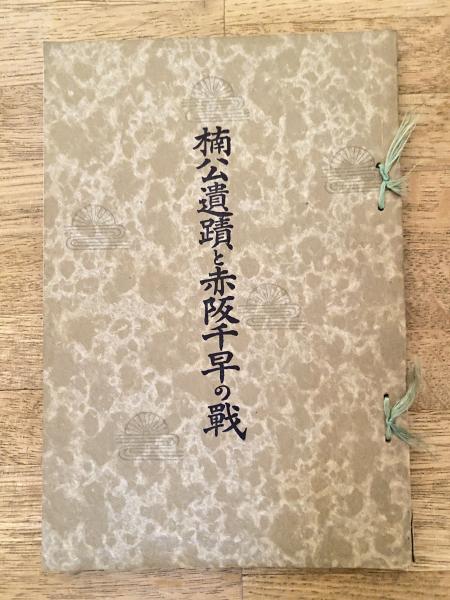 楠公遺蹟と赤阪千早の戰